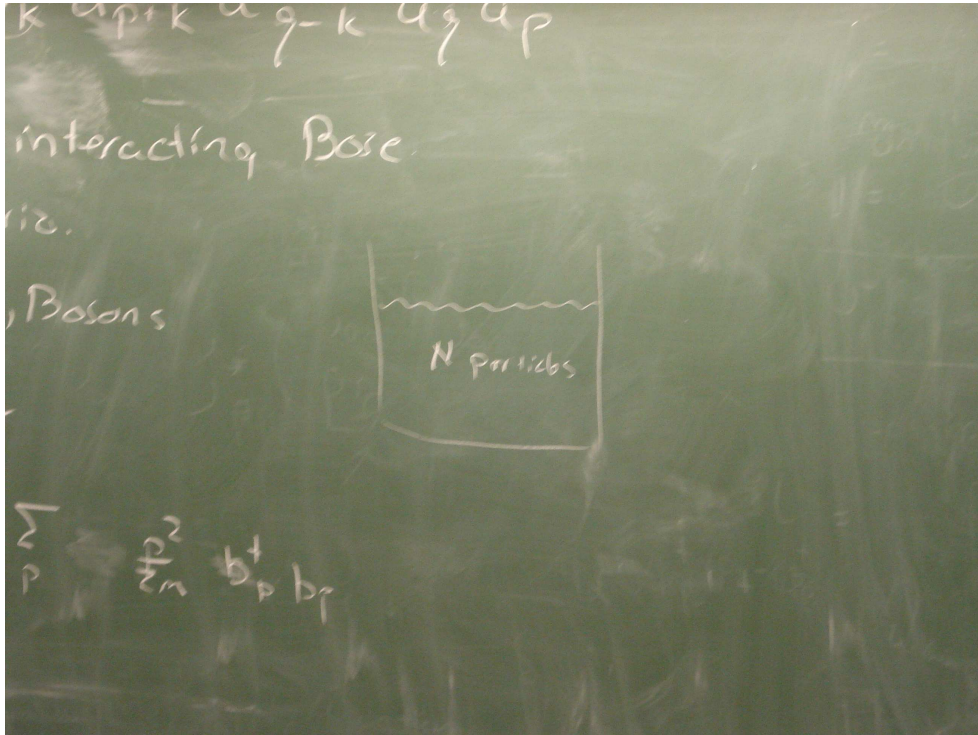 k a p+k a q-k a q a p
interacting Bose
Bosons
N particles
Σ p p²/2m b†p bp